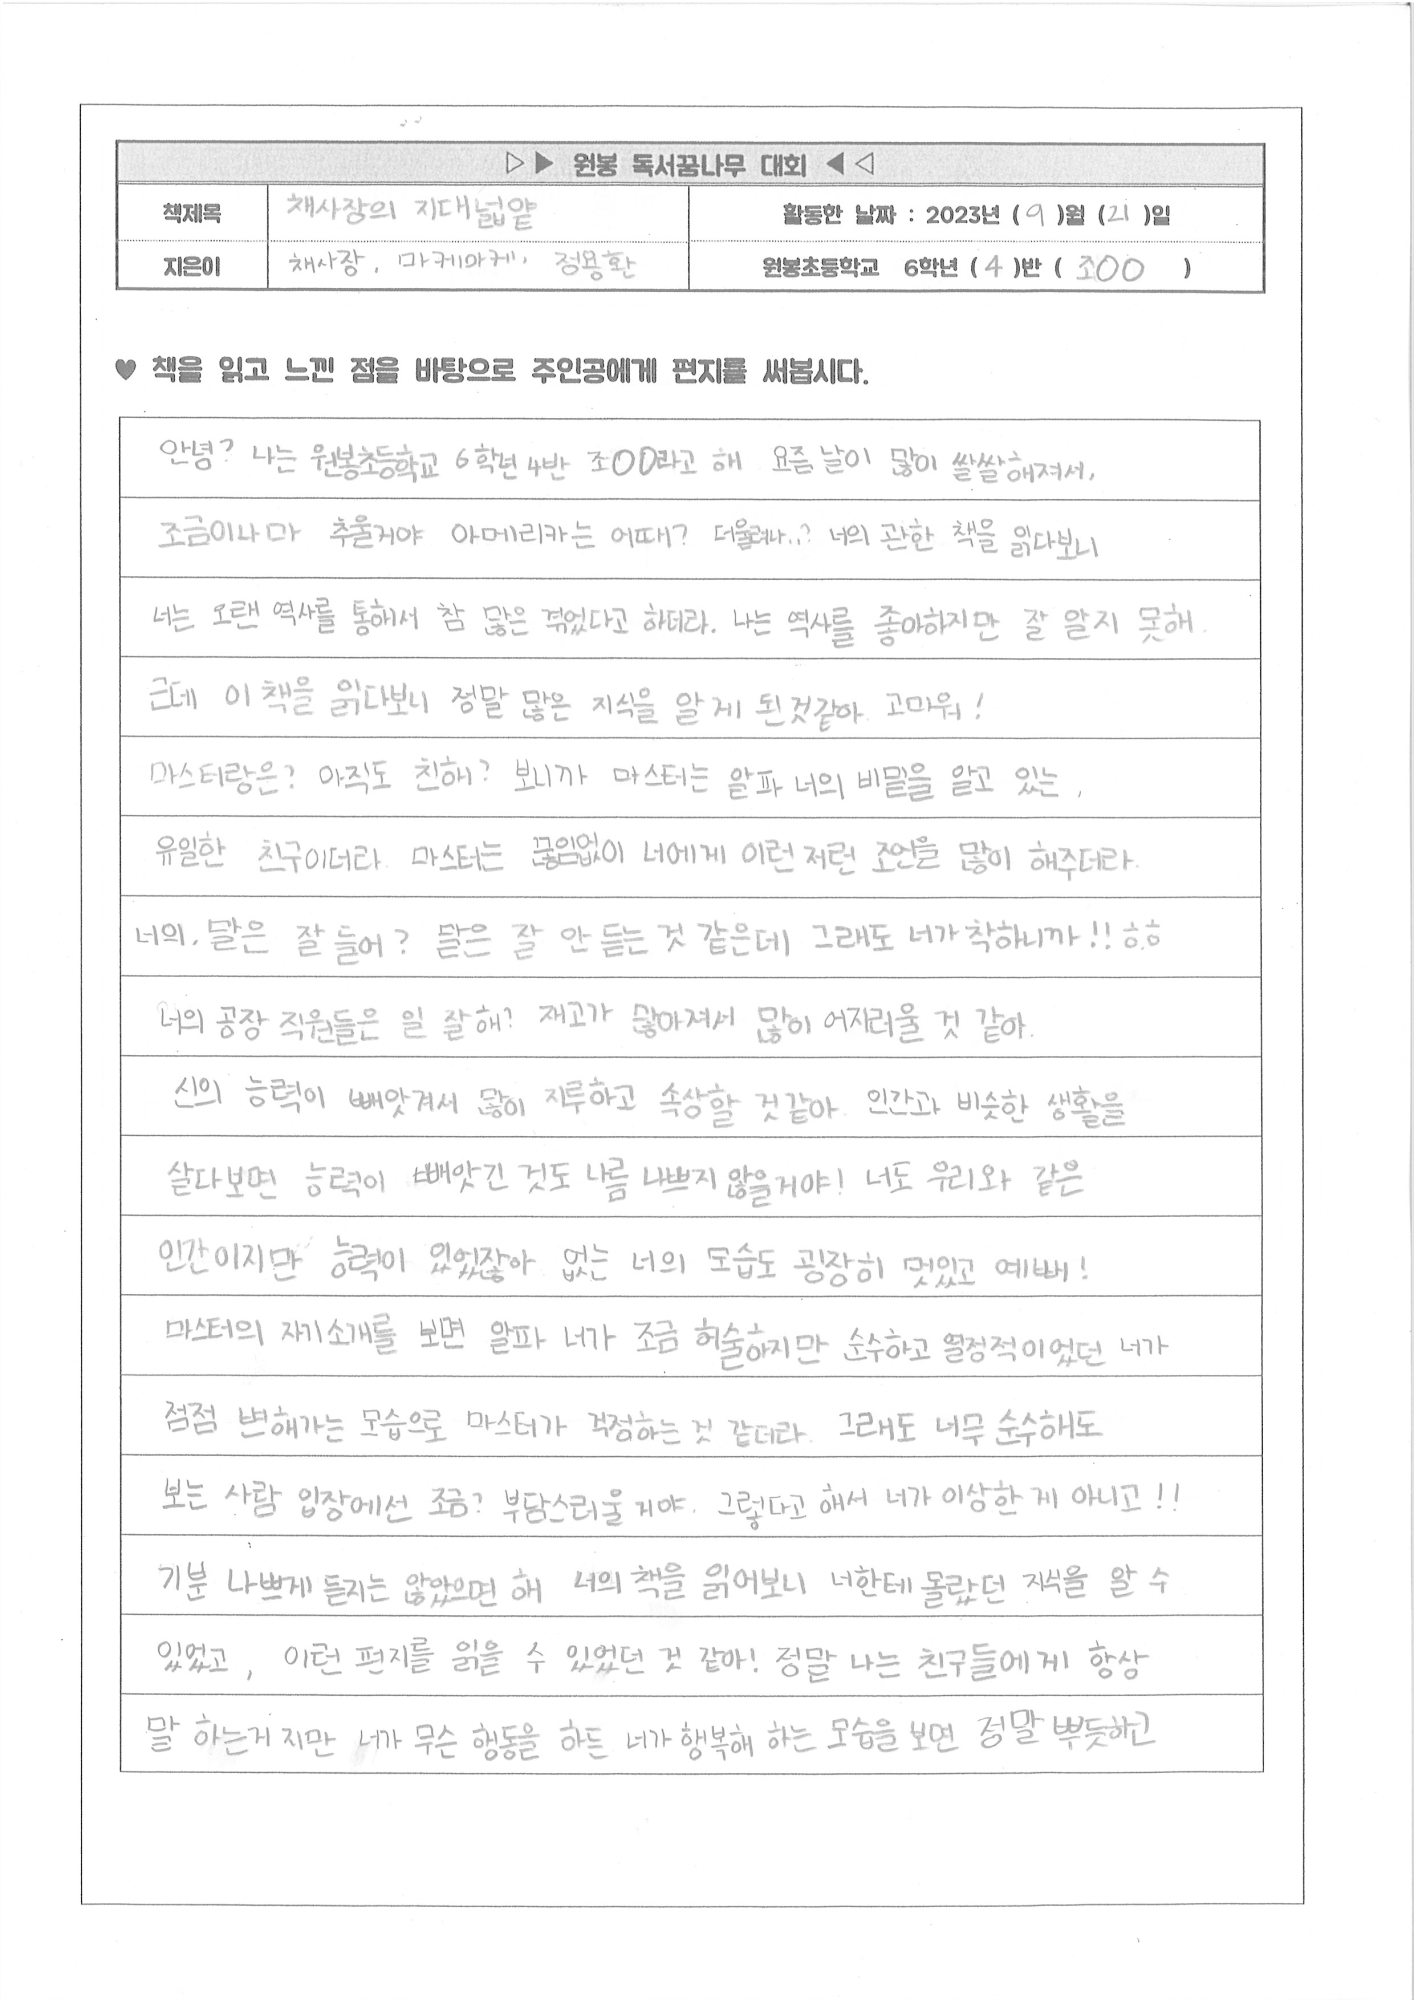 ▷▶ 원봉 독서꿈나무 대회 ◀◁
책제목 채사장의 지대넓얕 활동한 날짜 : 2023년 ( 9 )월 ( 21 )일
지은이 채사장, 마케마케, 정용환 원봉초등학교 6학년 ( 4 )반 ( 조OO )
♥ 책을 읽고 느낀 점을 바탕으로 주인공에게 편지를 써봅시다.
안녕? 나는 원봉초등학교 6학년 4반 조OO라고 해 요즘 날이 많이 쌀쌀해져서,
조금이나마 추울거야 아메리카는 어때? 더울려나..? 너의 관한 책을 읽다보니
너는 오랜 역사를 통해서 참 많은 겪었다고 하더라. 나는 역사를 좋아하지만 잘 알지 못해.
근데 이 책을 읽다보니 정말 많은 지식을 알게 된것같아. 고마워!
마스터랑은? 아직도 친해? 보니까 마스터는 알파 너의 비밀을 알고 있는,
유일한 친구이더라. 마스터는 끊임없이 너에게 이런저런 조언을 많이 해주더라.
너의, 말은 잘 들어? 말은 잘 안 듣는 것 같은데 그래도 너가 착하니까!! ㅎ.ㅎ
너의 공장 직원들은 일 잘해? 재고가 많아져서 많이 어지러울 것 같아.
신의 능력이 빼앗겨서 많이 지루하고 속상할 것같아. 인간과 비슷한 생활을
살다보면 능력이 빼앗긴 것도 나름 나쁘지 않을거야! 너도 우리와 같은
인간이지만 능력이 있었잖아 없는 너의 모습도 굉장히 멋있고 예뻐!
마스터의 자기소개를 보면 알파 너가 조금 허술하지만 순수하고 열정적이었던 너가
점점 변해가는 모습으로 마스터가 걱정하는 것 같더라. 그래도 너무 순수해도
보는 사람 입장에선 조금? 부담스러울거야. 그렇다고 해서 너가 이상한 게 아니고!!
기분 나쁘게 듣지는 않았으면 해 너의 책을 읽어보니 너한테 몰랐던 지식을 알 수
있었고, 이런 편지를 읽을 수 있었던 것 같아! 정말 나는 친구들에게 항상
말 하는거지만 너가 무슨 행동을 하든 너가 행복해 하는 모습을 보면 정말 뿌듯하고